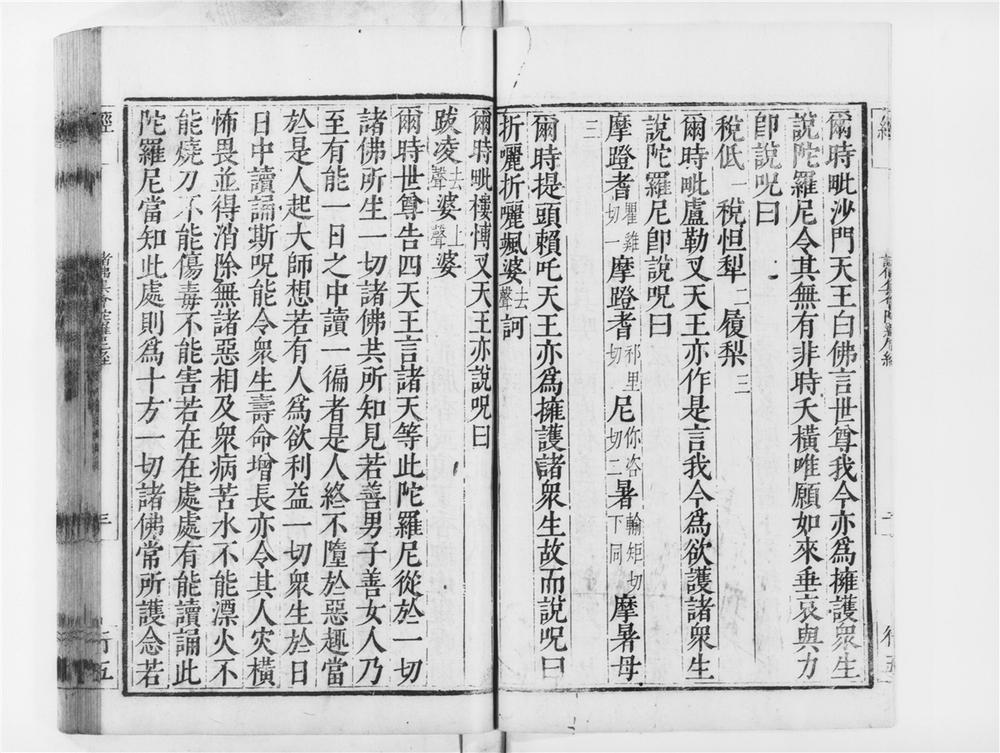 爾時毗沙門天王白佛言世尊我今亦爲擁護衆生
說陀羅尼令其無有非時夭橫唯願如來垂哀與力
卽說呪曰
稅低一稅怛犁二履梨三
爾時毗盧勒叉天王亦作是言我今爲欲護諸衆生
說陀羅尼卽說呪曰
摩蹬耆瞿雞切一摩蹬耆祁里切尼你咨切二暑輸矩切下同摩暑母
三
爾時提頭賴吒天王亦爲擁護諸衆生故而說呪曰
折囇折囇颯婆去聲訶
爾時毗樓愽叉天王亦說呪曰
跋凌去聲婆上聲婆
爾時世尊告四天王言諸天等此陀羅尼從於一切
諸佛所生一切諸佛共所知見若善男子善女人乃
至有能一日之中讀一徧者是人終不墮於惡趣當
於是人起大師想若有人爲欲利益一切衆生於日
日中讀誦斯呪能令衆生壽命增長亦令其人灾橫
怖畏並得消除無諸惡相及衆病苦水不能漂火不
能燒刀不能傷毒不能害若在在處處有能讀誦此
陀羅尼當知此處則爲十方一切諸佛常所護念若
經
行五